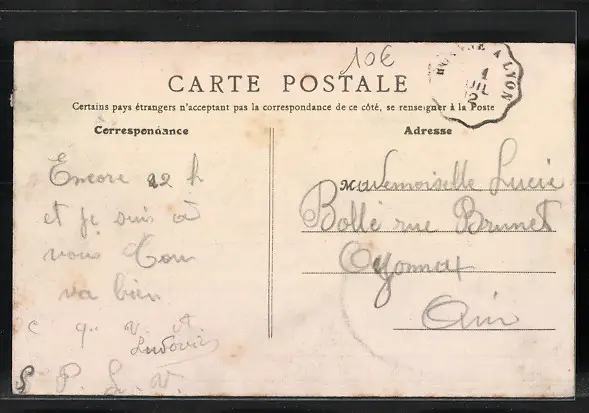 10€
CARTE POSTALE
Certains pays étrangers n'acceptant pas la correspondance de ce côté, se renseigner à la Poste
Correspondance
Adresse
A LYON
Encore 22 h
et je suis à
vous Tou
va bien
Ludovic
P. L. V.
Mademoiselle Lucie
Bollé rue Brunet
Oyonnax
Ain